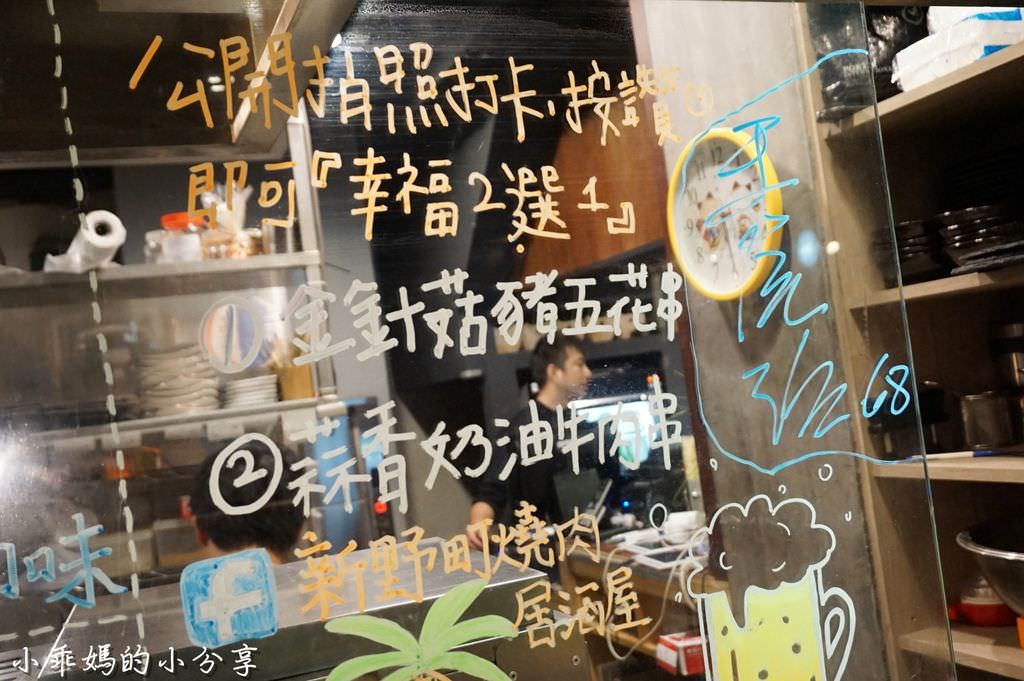 公開拍照打卡,按讚
即可『幸福2選1』
① 金針菇豬五花串
② 蒜香奶油牛肉串
f 新野町燒肉
居酒屋
68
味
小乖媽的小分享